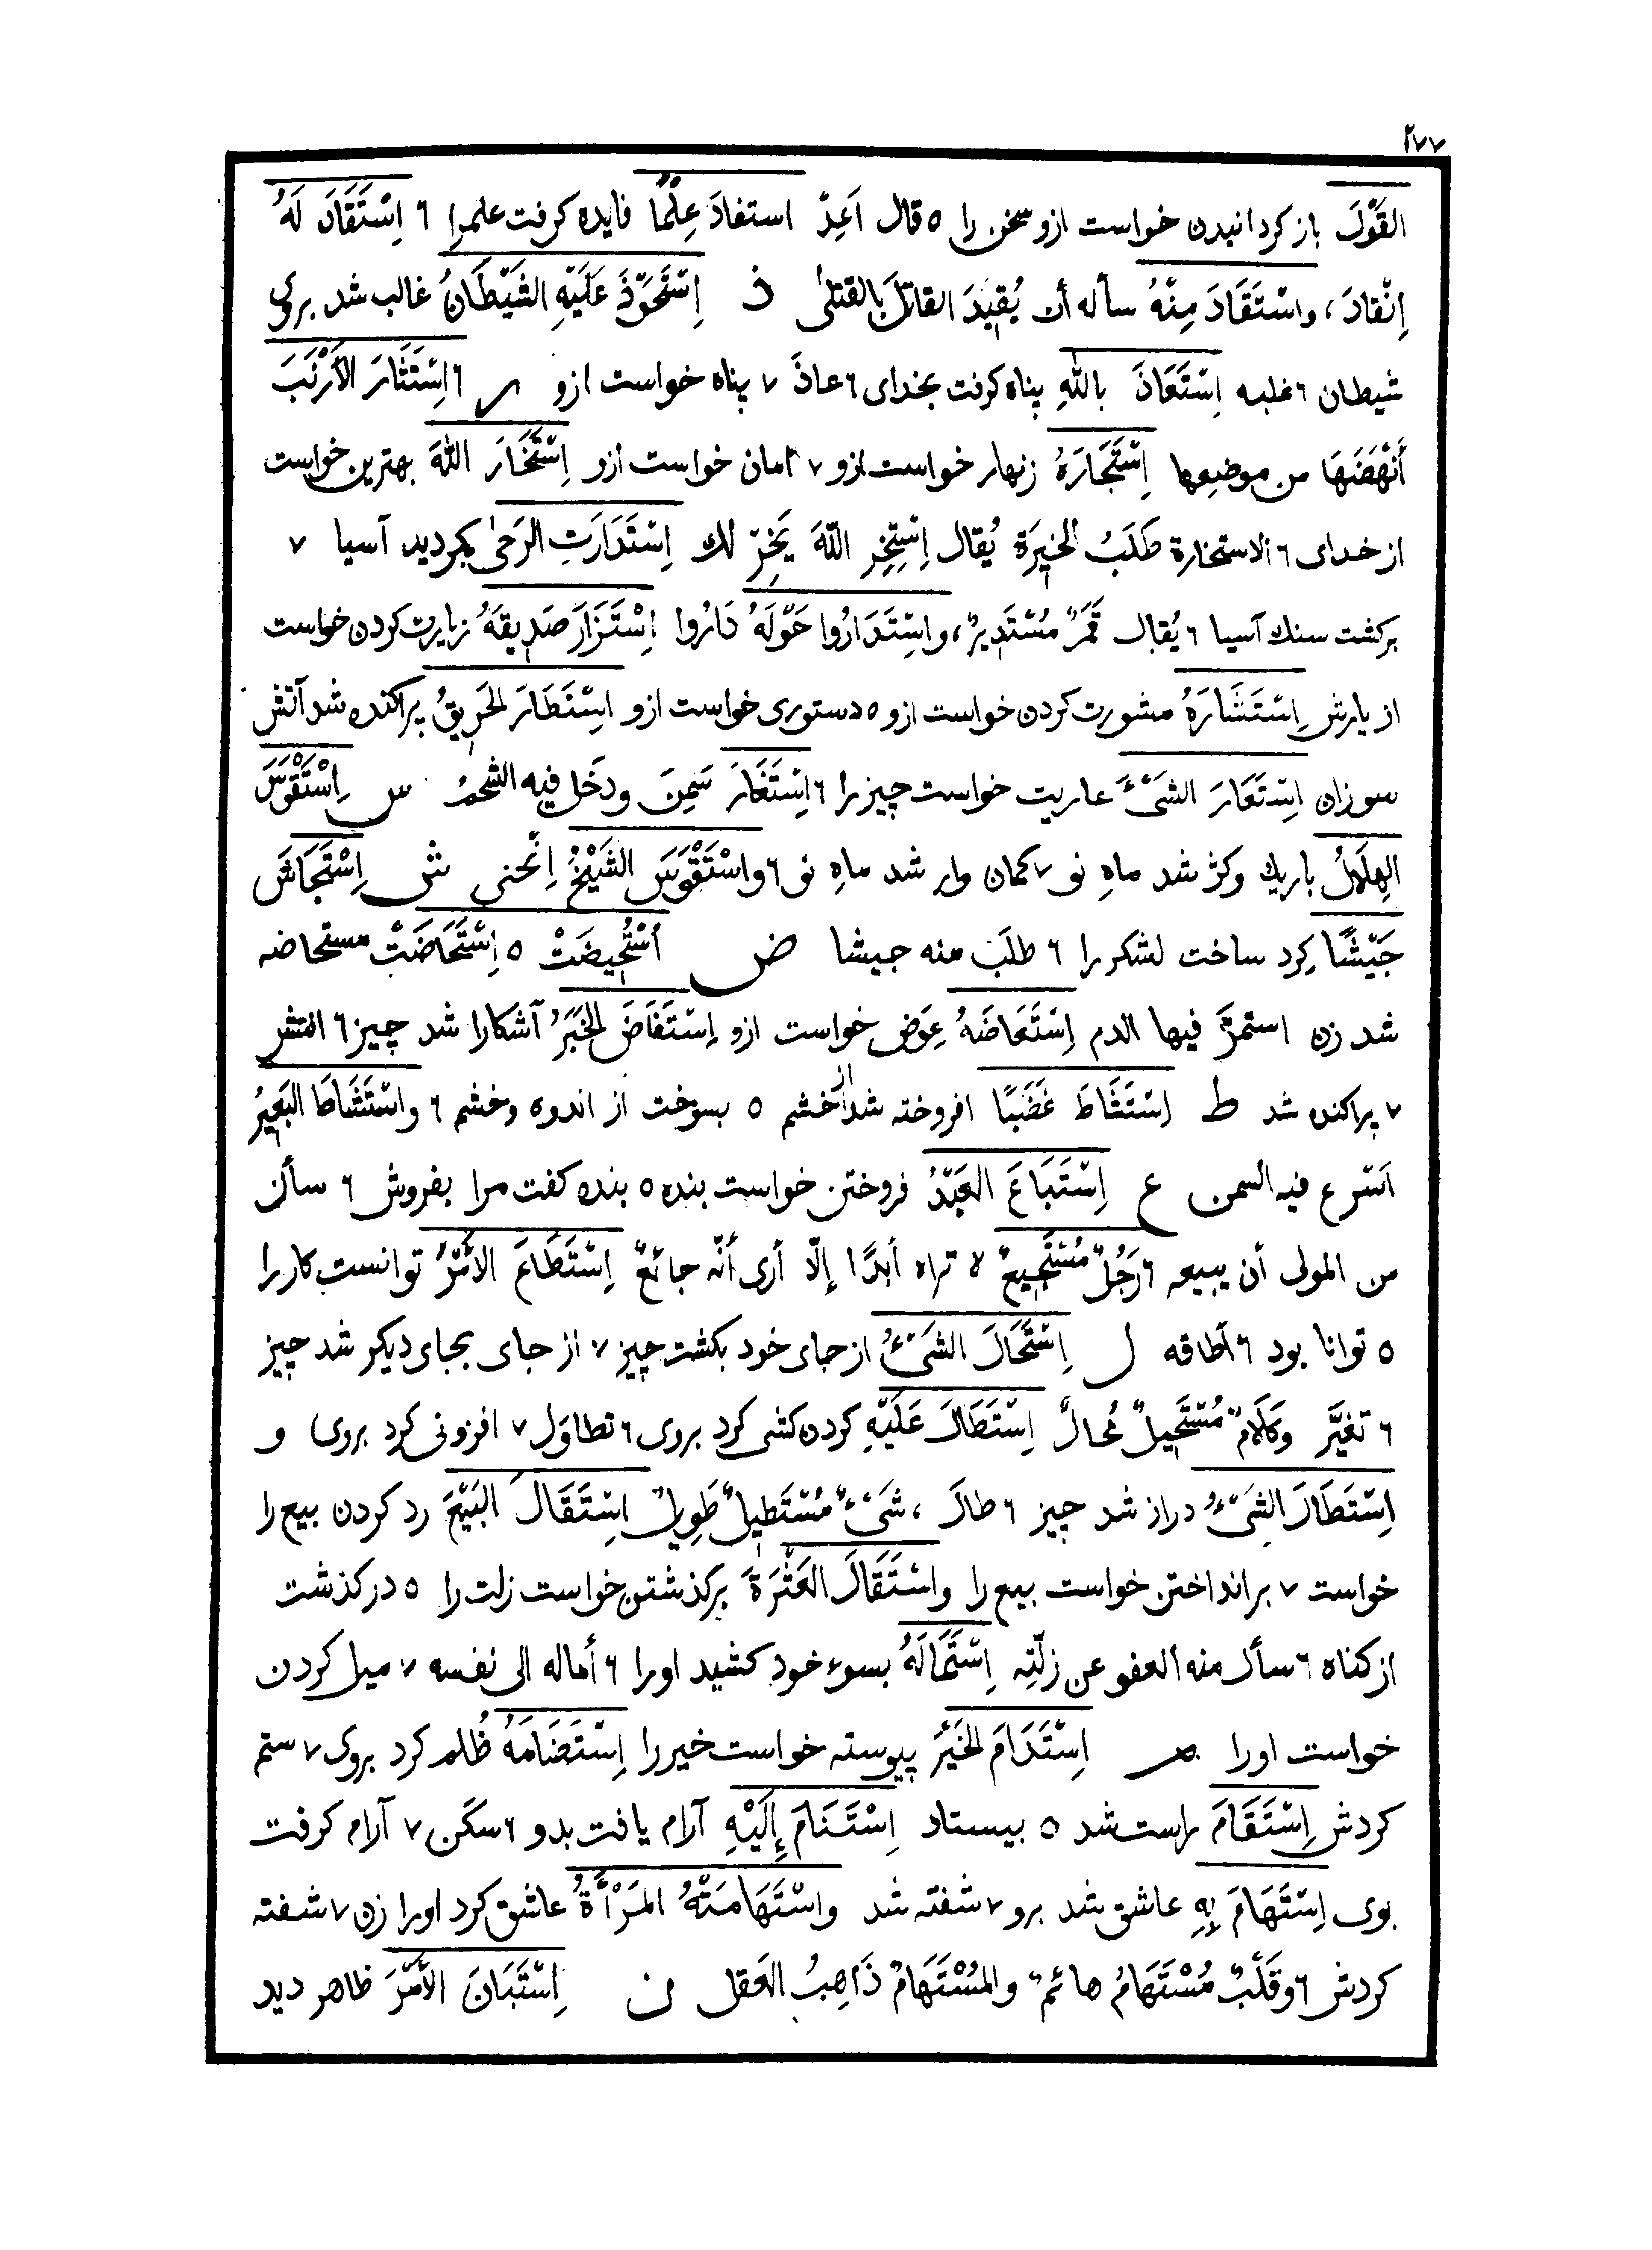 ٢٧٧
القَوْلَ باز كردانيدن خواست ازو سخن را ٥ قال اَعِدّ استفادَ عِلْمًا فايده كرفت علمرا ٦ اِسْتَقَادَ لَهُ
اِنْقادَ، واسْتَقَادَ مِنْهُ سأله أن يُقيدَ القاتلَ بالقتلى ذ اِسْتَحْوَذَ عَلَيْهِ الشَيْطَانُ غالب شد بروى
شيطان ٦ غلبه اِسْتَعَاذَ بِاللهِ پناه كرفت بخداى ٦ عاذَ ٧ پناه خواست ازو ر ٦ اِسْتَثَارَ الأَرْنَبَ
أَنْهَضَهَا من موضعها اِسْتَجَارَهُ زنهار خواست ازو ٧ امان خواست ازو اِسْتَخَارَ اللهَ بهترين خواست
از خداى ٦ الاستخارة طَلَبُ الخِيَرَة يُقال اِسْتَخِرِ اللّهَ يَخِرْ لك اِسْتَدَارَتِ الرَحىٰ بكرديد آسيا ٧
بركشت سنك آسيا ٦ يُقال قَمَرٌ مُسْتَديرٌ، واسْتَدَارُوا حَوْلَهُ دَارُوا اِسْتَزَارَ صَدِيقَهُ زيارت كردن خواست
از يارش اِسْتَشَارَهُ مشورت كردن خواست ازو ٥ دستورى خواست ازو اسْتَطَارَ الحَرِيقُ پراكنده شد آتش
سوزان اِسْتَعَارَ الشَىْءَ عاريت خواست چيز را ٦ اِسْتَغَارَ سَمِنَ ودَخَل فيه الشحمُ س اِسْتَقْوَسَ
الهِلَالُ باريك وكژ شد ماهِ نو ٧ كمان وار شد ماهِ نو ٦ واسْتَقْوَسَ الشَيْخُ اِنْحَنى ش اِسْتَجَاشَ
جَيْشًا كرد ساخت لشكر را ٦ طلَبَ منه جيشا ض اُسْتُحِيضَتْ ٥ اِسْتَحَاضَتْ مستحاضه
شد زن استمرَّ فيها الدم اِسْتَعَاضَهُ عِوَض خواست ازو اِسْتَفَاضَ الخَبَرُ آشكارا شد چيز ٦ انتشر
٧ پراكنده شد ط اِسْتَشَاطَ غَضَبًا افروخته شد از خشم ٥ بسوخت از اندوه وخشم ٦ واسْتَشَاطَ البَعِيرُ
اَسْرع فيه السمن ع اِسْتَبَاعَ العَبْدُ فروختن خواست بنده ٥ بنده كفت مرا بفروش ٦ سأل
من المولى أن يبيعه ٦ رَجُلٌ مُسْتَجِيعٌ لا تراه أبدًا إلّا أرى أنّه جائعٌ اِسْتَطَاعَ الامْرَ توانست كار را
٥ توانا بود ٦ أطاقه ل اِسْتَحَالَ الشَىْءُ از جاى خود بكشت چيز ٧ از جاى بجاى ديكر شد چيز
٦ تغيَّر وكَلَامٌ مُسْتَحِيلٌ مُحالٌ اِسْتَطَالَ عَلَيْهِ كردن كشى كرد بروى ٦ تطاوَل ٧ افزونى كرد بروى و
اِسْتَطَالَ الشَىْءُ دراز شد چيز ٦ طالَ، شَىْءٌ مُسْتَطيلٌ طَوِيلٌ اسْتَقَالَ البَيْعَ رد كردن بيع را
خواست ٧ برانداختن خواست بيع را واسْتَقَالَ العَثْرَةَ بركذشتن خواست زلت را ٥ دركذشت
از كناه ٦ سأل منه العفو عن زلّتِه اِسْتَمَالَهُ بسوء خود كشيد اورا ٦ أماله الى نفسه ٧ ميل كردن
خواست اورا م اِسْتَدَامَ الخَيْرَ پيوسته خواست خير را اِسْتَضَامَهُ ظُلم كرد بروى ٧ ستم
كردش اِسْتَقَامَ راست شد ٥ بيستاد اِسْتَنَامَ إِلَيْهِ آرام يافت بدو ٦ سكَن ٧ آرام كرفت
بوى اِسْتَهَامَ بِهِ عاشق شد برو ٧ شفته شد واسْتَهَامَتْهُ المَرْأَةُ عاشق كرد اورا زن ٧ شفته
كردش ٦ وقَلْبٌ مُسْتَهَامٌ هائمٌ والمُسْتَهَامٌ ذَاهِبُ العَقل ن اِسْتَبَانَ الأَمْرَ ظاهر ديد